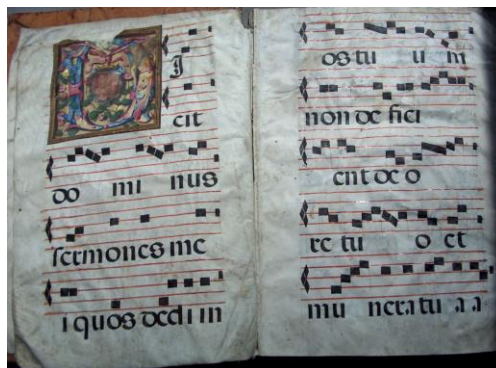 DI
cit
do mi nus
sermones me
i quos dedi in
os tu u m
non de fici
ent de o
re tu o et
mu nera tu a a